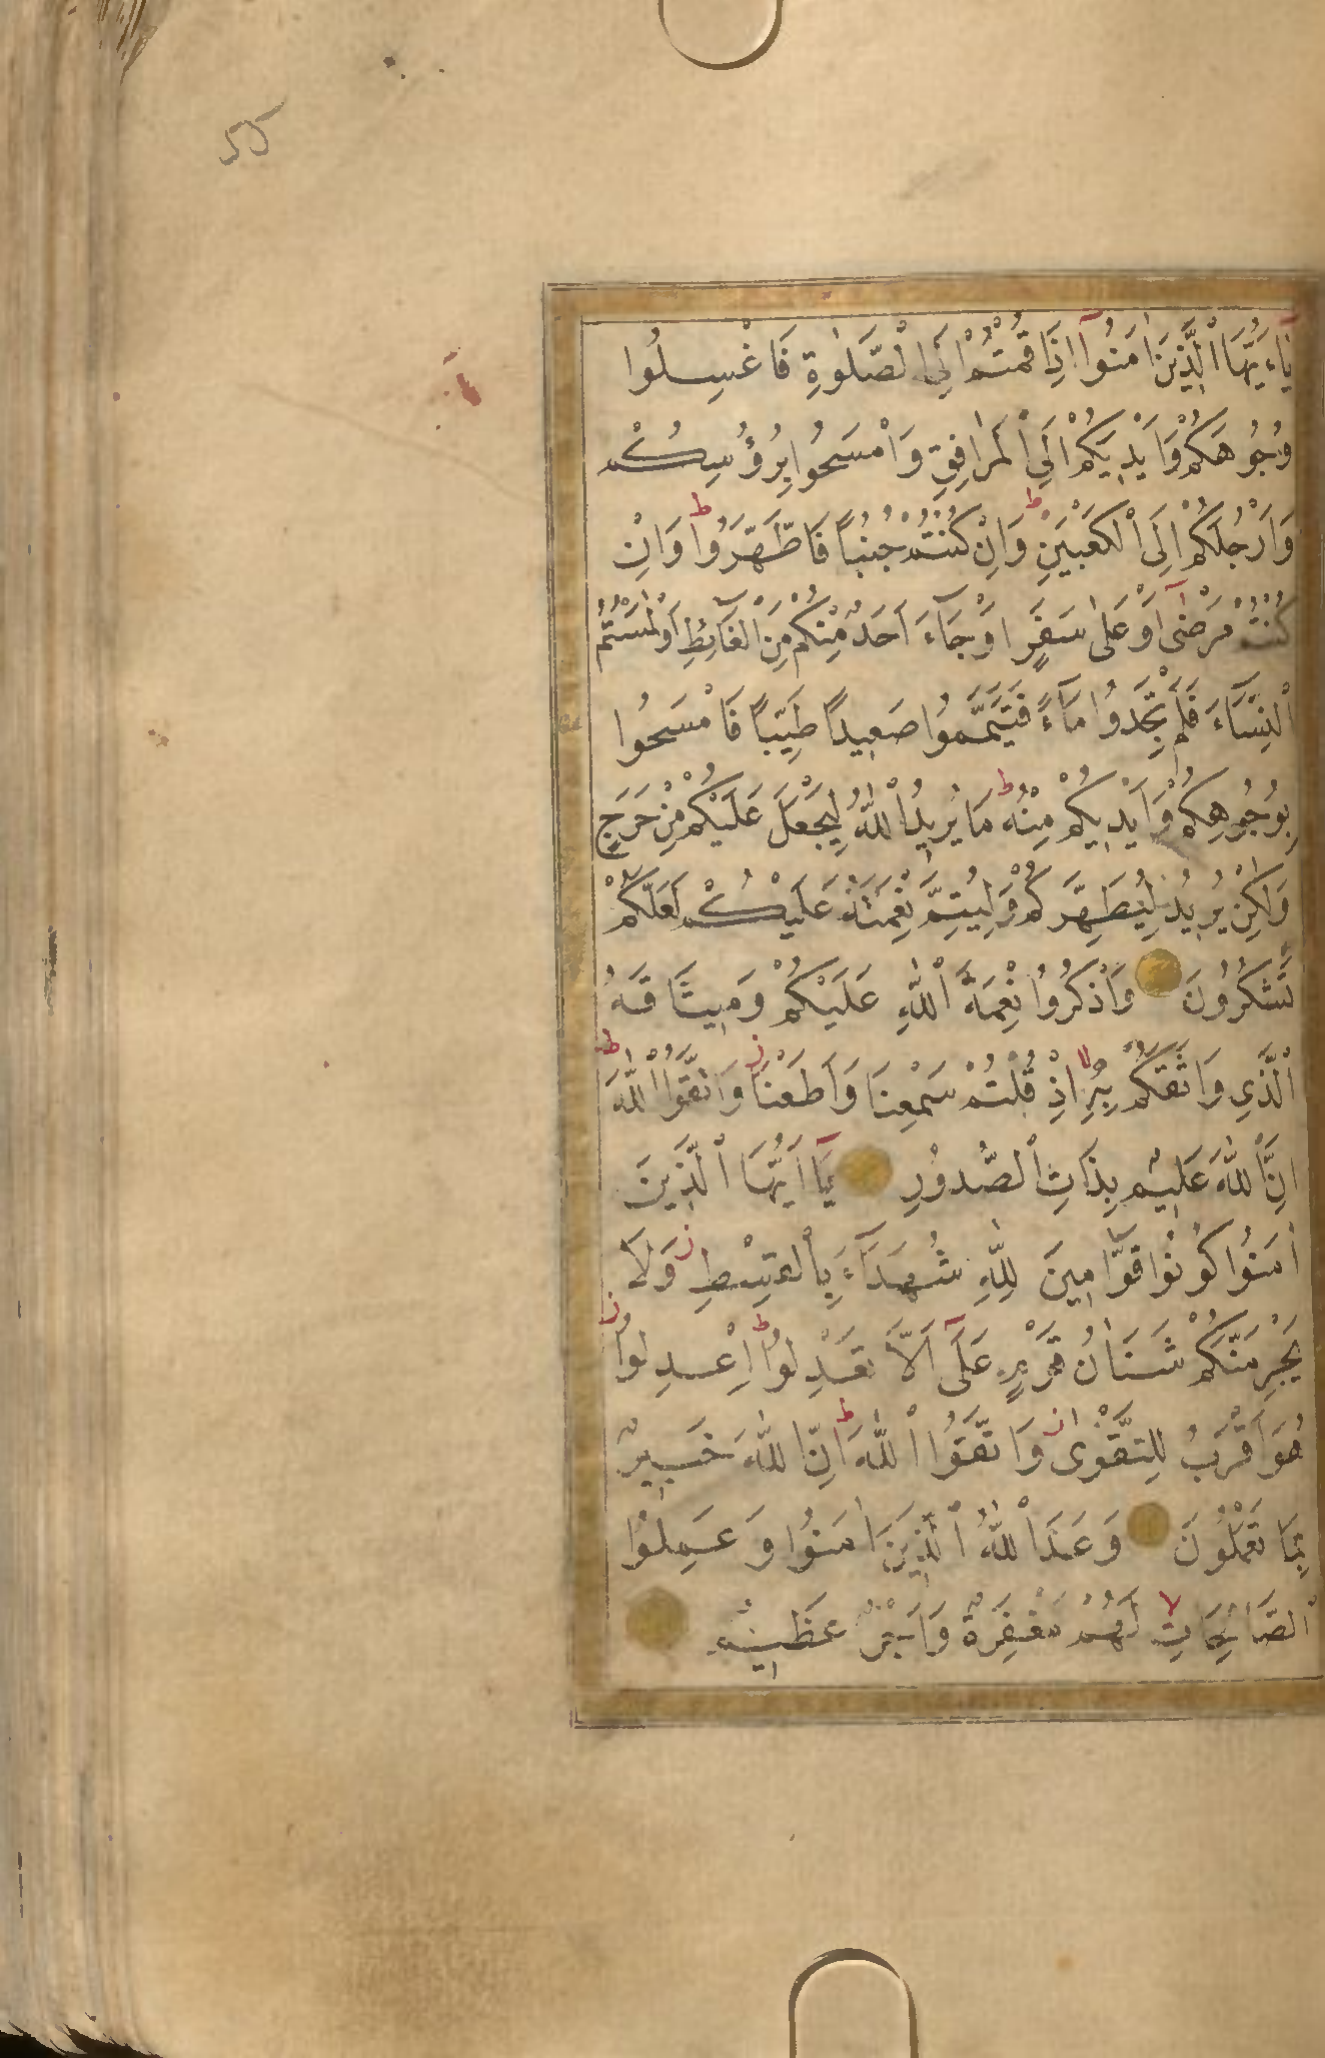 55
يَٓاءَيُّهَا الَّذِينَ اٰمَنُٓوا اِذَا قُمْتُمْ اِلَى الصَّلٰوةِ فَاغْسِلُوا
وُجُوهَكُمْ وَاَيْدِيَكُمْ اِلَى الْمَرَافِقِ وَامْسَحُوا بِرُؤُسِكُمْ
وَاَرْجُلَكُمْ اِلَى الْكَعْبَيْنِ ط وَاِنْ كُنْتُمْ جُنُبًا فَاطَّهَّرُوا ط وَاِنْ
كُنْتُمْ مَرْضٰٓى اَوْ عَلٰى سَفَرٍ اَوْ جَٓاءَ اَحَدٌ مِنْكُمْ مِنَ الْغَٓائِطِ اَوْ لٰمَسْتُمُ
النِّسَٓاءَ فَلَمْ تَجِدُوا مَٓاءً فَتَيَمَّمُوا صَعِيدًا طَيِّبًا فَامْسَحُوا
بِوُجُوهِكُمْ وَاَيْدِيكُمْ مِنْهُ ط مَا يُرِيدُ اللّٰهُ لِيَجْعَلَ عَلَيْكُمْ مِنْ حَرَجٍ
وَلٰكِنْ يُرِيدُ لِيُطَهِّرَكُمْ وَلِيُتِمَّ نِعْمَتَهُ عَلَيْكُمْ لَعَلَّكُمْ
تَشْكُرُونَ وَاذْكُرُوا نِعْمَةَ اللّٰهِ عَلَيْكُمْ وَمِيثَاقَهُ
الَّذِي وَاثَقَكُمْ بِهِ لا اِذْ قُلْتُمْ سَمِعْنَا وَاَطَعْنَا ز وَاتَّقُوا اللّٰهَ ط
اِنَّ اللّٰهَ عَلِيمٌ بِذَاتِ الصُّدُورِ يَٓا اَيُّهَا الَّذِينَ
اٰمَنُوا كُونُوا قَوَّامِينَ لِلّٰهِ شُهَدَٓاءَ بِالْقِسْطِ ز وَلَا
يَجْرِمَنَّكُمْ شَنَاٰنُ قَوْمٍ عَلٰٓى اَلَّا تَعْدِلُوا ط اِعْدِلُوا ز
هُوَ اَقْرَبُ لِلتَّقْوٰى ز وَاتَّقُوا اللّٰهَ ط اِنَّ اللّٰهَ خَبِيرٌ
بِمَا تَعْمَلُونَ وَعَدَ اللّٰهُ الَّذِينَ اٰمَنُوا وَعَمِلُوا
الصَّالِحَاتِ لا لَهُمْ مَغْفِرَةٌ وَاَجْرٌ عَظِيمٌ